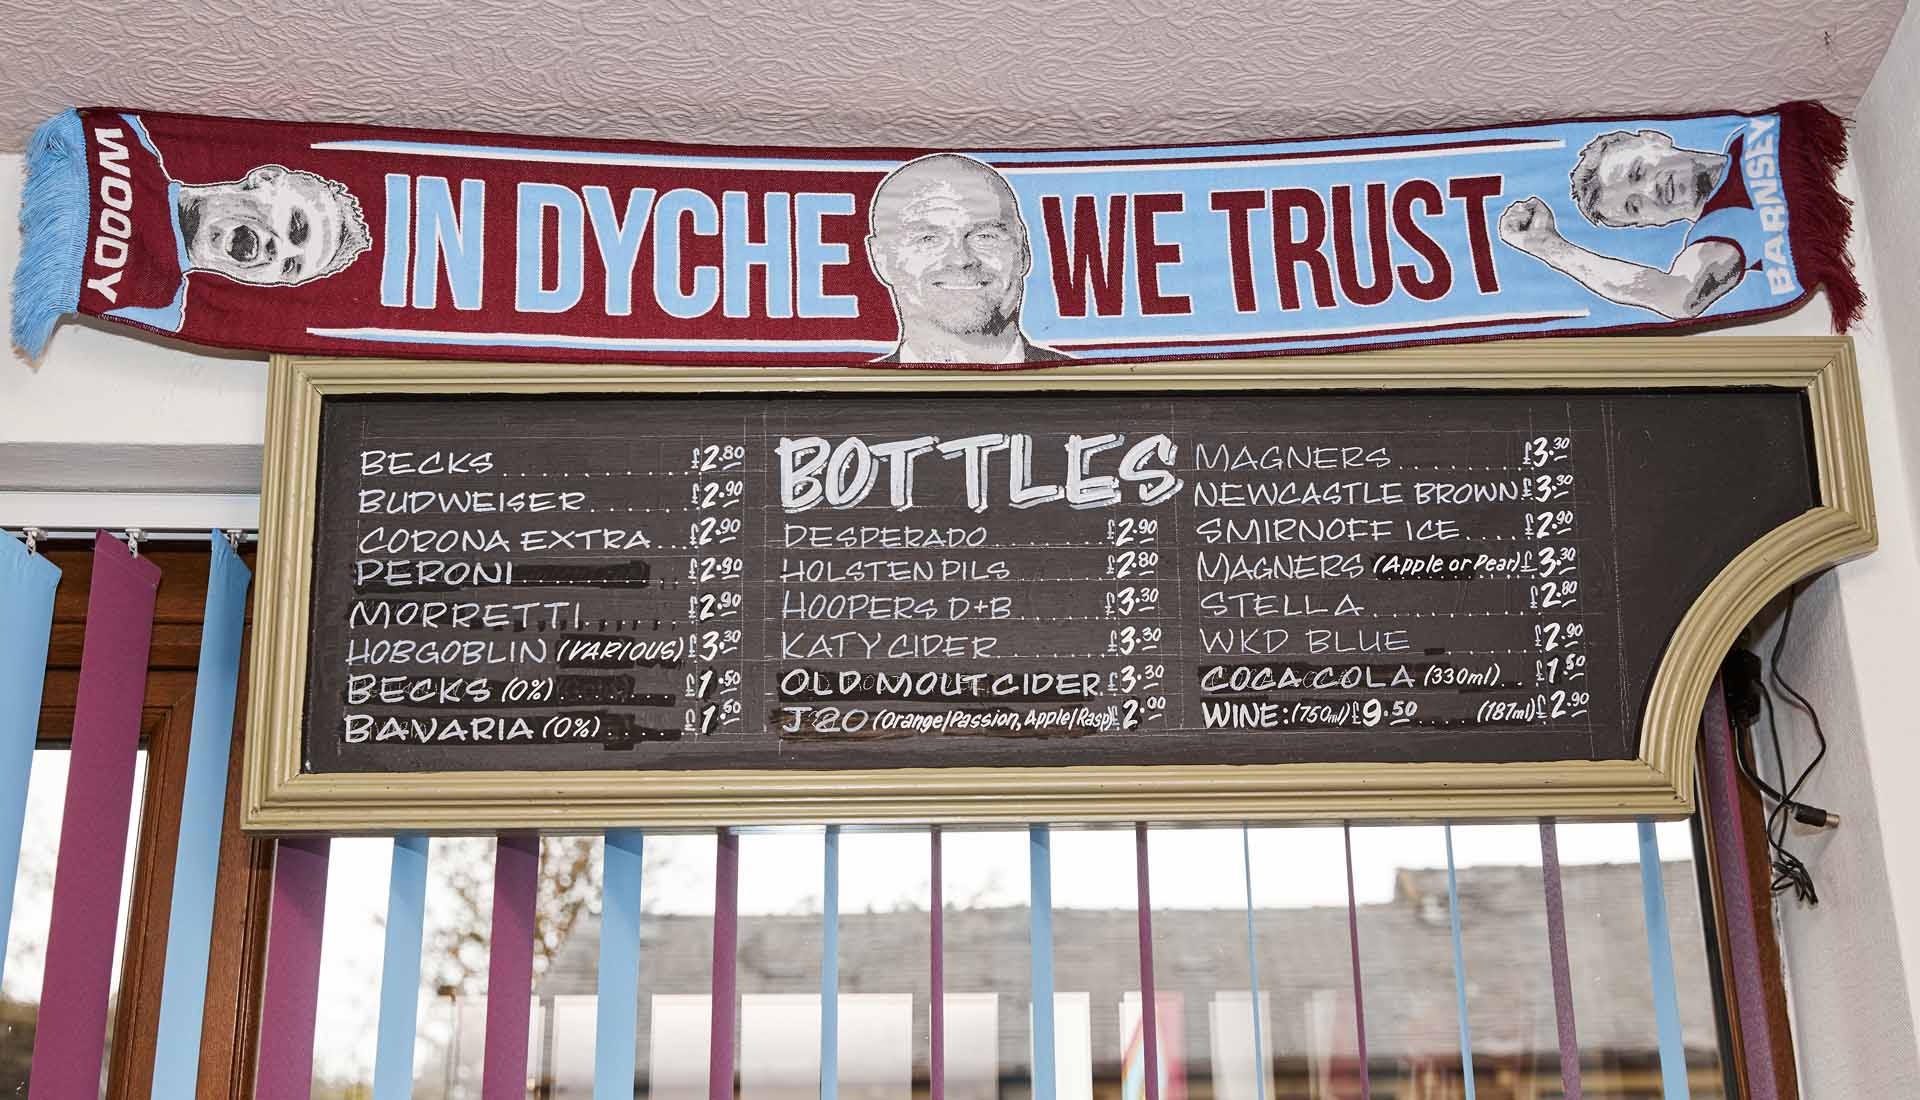 WOODY
IN DYCHE WE TRUST
BARNSEY
BECKS £2.80
BUDWEISER £2.90
CORONA EXTRA £2.90
PERONI £2.90
MORRETTI £2.90
HOBGOBLIN (VARIOUS) £3.30
BECKS (0%) £1.50
BAVARIA (0%) £1.50
BOTTLES
DESPERADO £2.90
HOLSTEN PILS £2.80
HOOPERS D+B £3.30
KATY CIDER £3.30
OLD MOUT CIDER £3.30
J20 (Orange/Passion, Apple/Rasp) £2.00
MAGNERS £3.30
NEWCASTLE BROWN £3.30
SMIRNOFF ICE £2.90
MAGNERS (Apple or Pear) £3.30
STELLA £2.80
WKD BLUE £2.90
COCA COLA (330ml) £1.50
WINE: (750ml) £9.50 (187ml) £2.90